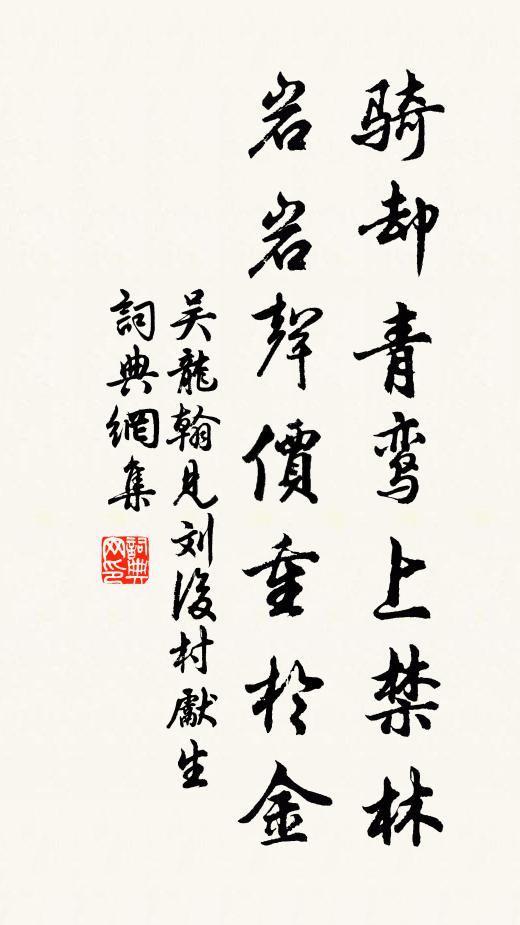 骑却青鸾上禁林
岩岩聲價重於金
吴龍翰見刘後村獻生
詞典網集
詞典網印